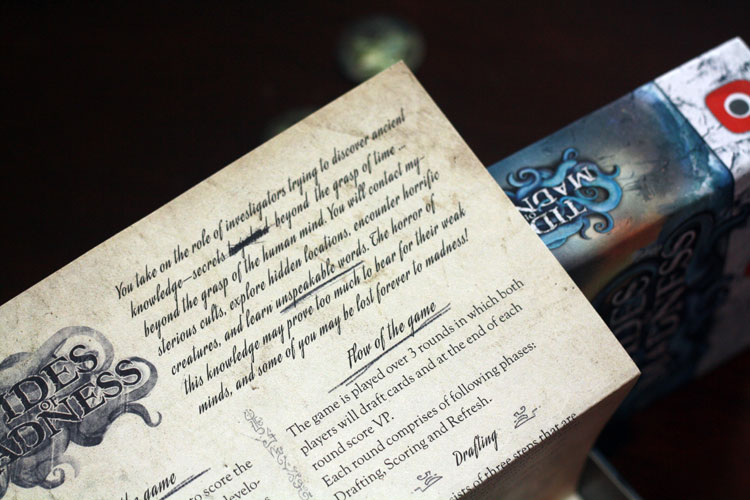 You take on the role of investigators trying to discover ancient
knowledge—secrets beyond the grasp of time –
beyond the grasp of the human mind. You will contact my-
sterious cults, explore hidden locations, encounter horrific
creatures, and learn unspeakable words. The horror of
this knowledge may prove too much to bear for their weak
minds, and some of you may be lost forever to madness!
Flow of the game
The game is played over 3 rounds in which both
players will draft cards and at the end of each
round score VP.
Each round comprises of following phases:
Drafting, Scoring and Refresh.
Drafting
sists of three steps that are
TIDES
OF
MADNESS
the game
to score the
develo-
TIDES
MADNESS